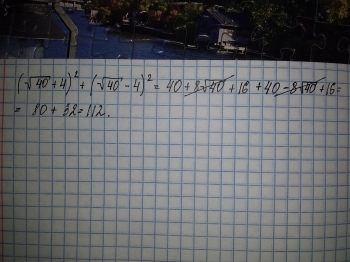 (√40 + 4)² + (√40 - 4)² = 40 + 8√40 + 16 + 40 - 8√40 + 16 =
= 80 + 32 = 112.